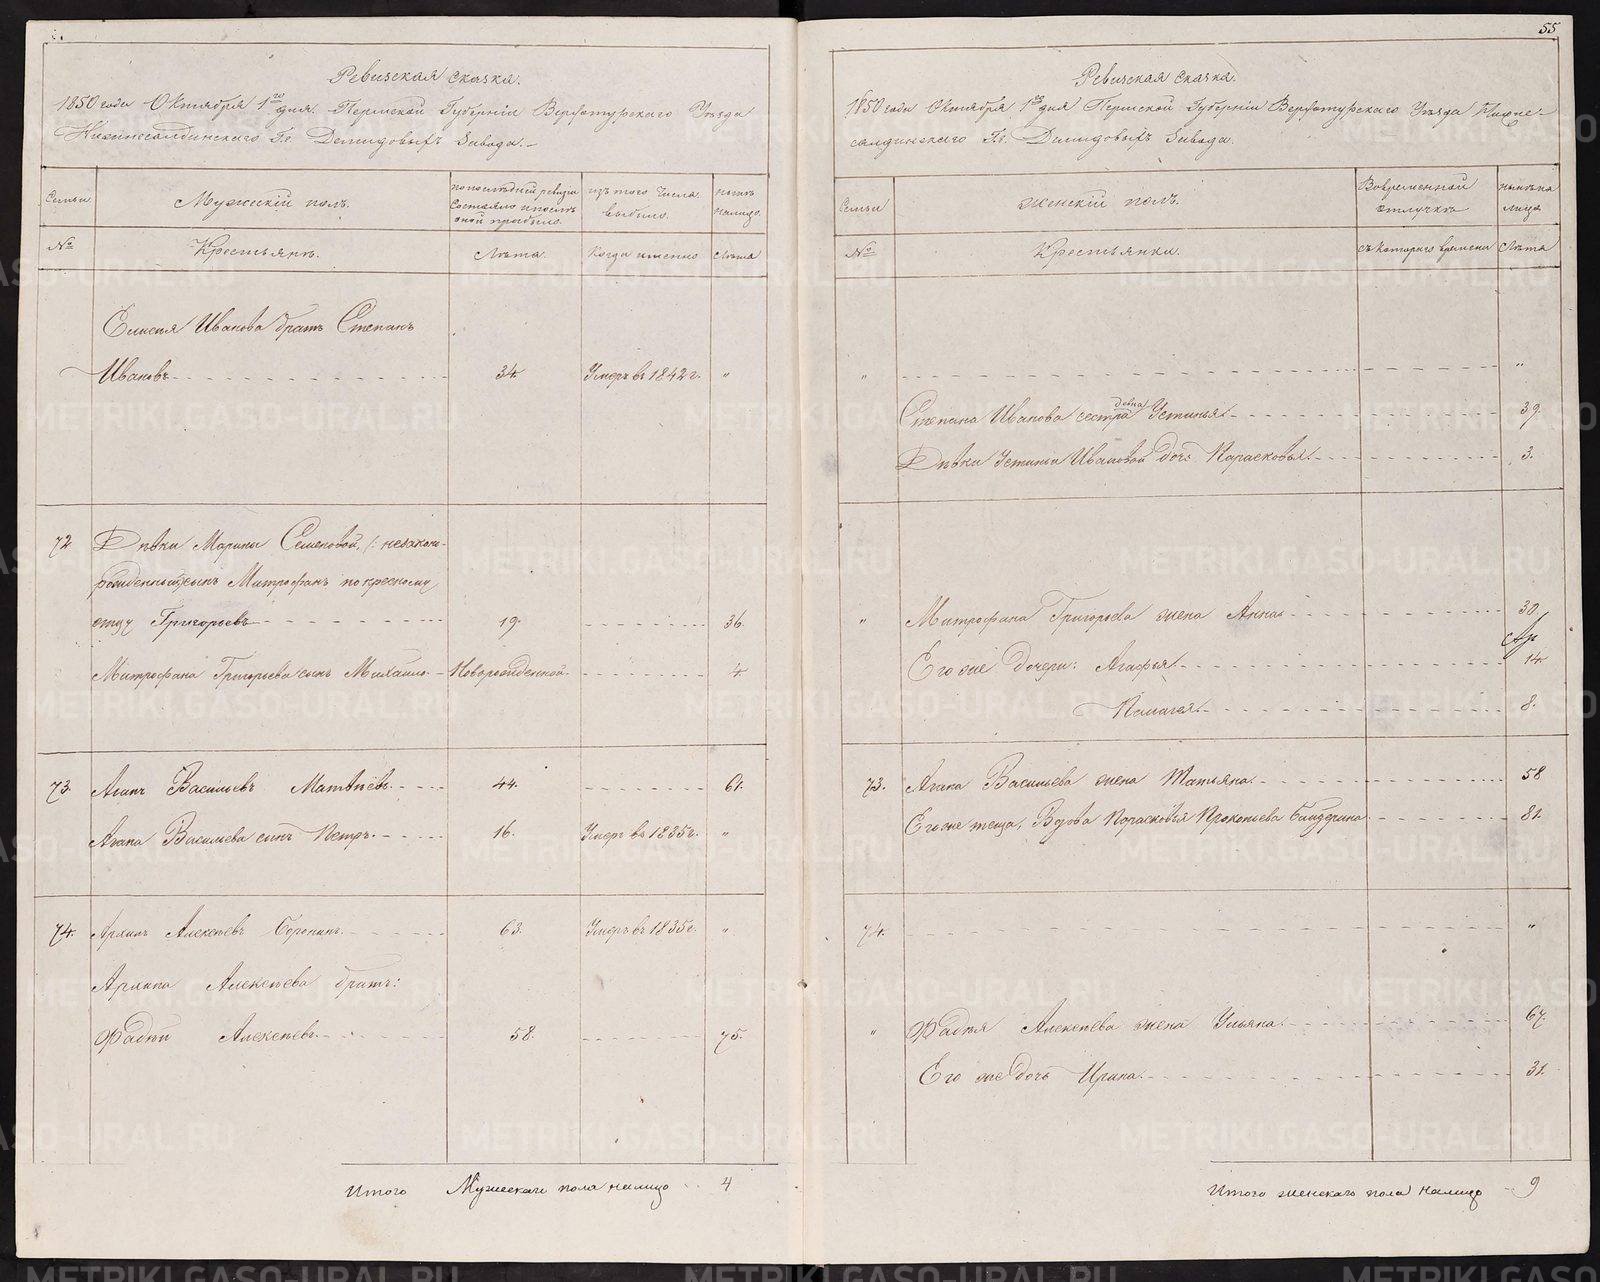 Ревизская сказка.
1850 года Октября 1го дня. Пермской Губерніи Верхотурскаго Уѣзда
Нижнесалдинскаго Гг. Демидовыхъ Завода.
Семьи
Мужескій полъ.
по послѣдней ревизіи
состояло и послѣ
оной прибыло.
изъ того числа
выбыло.
нынѣ
налицо.
№
Крестьянъ.
Лѣта.
Когда именно
Лѣта
Елисѣя Иванова братъ Степанъ
Ивановъ 34. Умеръ въ 1842 г. „
72 Дѣвки Марины Семеновой, /: незаконо-
рожденный сынъ Митрофанъ по крестному
отцу Григорьевъ 19. 36.
Митрофана Григорьева сынъ Михайло Новорожденной. 4
73. Агапъ Васильевъ Матвѣевъ 44. 61.
Агапа Васильева сынъ Петръ 16. Умеръ въ 1835 г. „
74. Архипъ Алексѣевъ Соронинъ 63. Умеръ въ 1835 г. „
Архипа Алексѣева братъ:
Фадѣй Алексѣевъ 58. 75.
Итого Мужескаго пола налицо 4
55
Ревизская сказка.
1850 года Октября 1го дня Пермской Губерніи Верхотурскаго Уѣзда Нижне-
салдинскаго Гг. Демидовыхъ Завода.
Семьи
Женскій полъ.
Во временной
отлучкѣ
нынѣ на
лицо
№
Крестьянки.
съ котораго времени
Лѣта
„ „
Степана Иванова сестра дѣвка Устинья 39.
Дѣвки Устиньи Ивановой дочь Парасковья 3.
„ Митрофана Григорьева жена Анна 30.
Его же дочери: Агафья 14
Пелагея 8.
73. Агапа Васильева жена Татьяна 58
Его же теща, Вдова Парасковья Прокопьева 81
74. „
„ Фадѣя Алексѣева жена Ульяна 67.
Его же дочь Ирина 31.
Итого женскаго пола налицо 9
METRIKI.GASO-URAL.RU